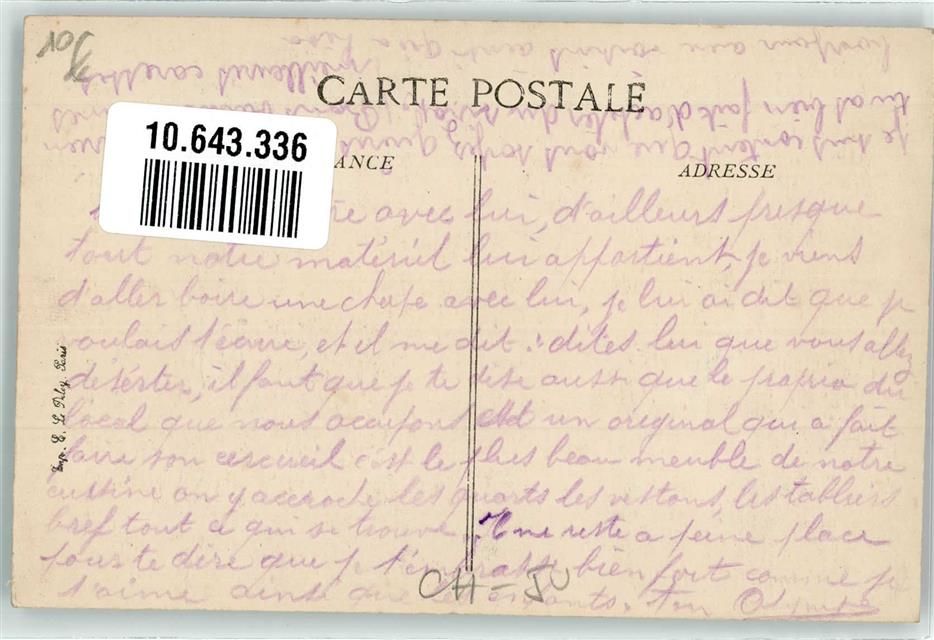 CARTE POSTALE
10.643.336
ANCE
ADRESSE
avec lui, d'ailleurs presque
tout notre matériel lui appartient, je viens
d'aller boire une chope avec lui, je lui ai dit que je
voulais t'écrire, et il me dit : dites lui que vous allez
déserter, il faut que je te dise aussi que le proprio du
local que nous occupons est un original qui a fait
faire son cercueil c'est le plus beau meuble de notre
cuisine on y accroche les quarts les vestons, les tabliers
bref tout ce qui se trouve. Il me reste a peine place
pour te dire que je t'embrasse bien fort comme je
t'aime ainsi que les enfants. Ton Olympe
CH - JU
Imp. E. Le Deley, Paris
je suis content que vous soyez
tu as bien fait d'acheter du meilleures
bonjour aux voisins ainsi qu'a